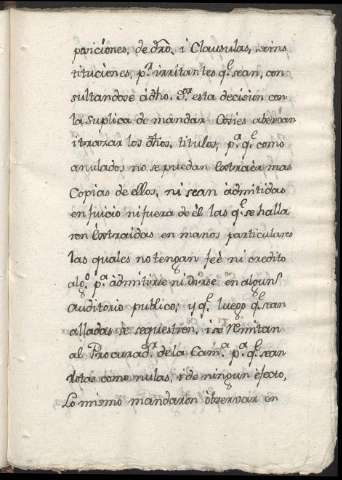 posiciones, de dro, i Clausulas, è ins
titucienes, pr. irritantes q.e sean, con
sultandose à dho. Sr. esta decision con
la suplica de mandar Côries aberian
i traxar los dhos, titulos, p.a q.e como
anulados no se puedan Extraèr mas
Copias de ellos, ni sean admitidas
en juicio ni fuera de èl las q.e se halla
ron Extraidas en manos particulares
las quales no tengan feè ni credito
alg.o p.a admitirse ni darse en algun
auditorio publico; y q.e luego q.e sean
alladas se sequestren, i se remitan
al Procurad.or de la Cam.a p.a q.e sean
dotas como nulas, i de ningun efecto,
Lo mismo mandaron observar en